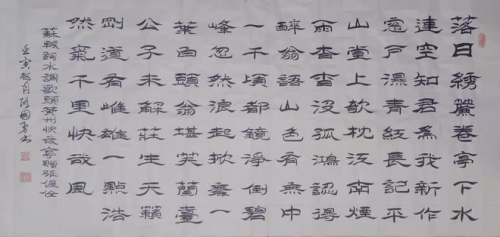 落日繡簾卷亭下水
連空知君為我新作
窓戶濕青紅長記平
山堂上欹枕江南煙
雨杳杳沒孤鴻認得
醉翁語山色有無中
一千頃都鏡淨倒碧
峰忽然浪起掀舞一
葉白頭翁堪笑蘭臺
公子未解莊生天籟
剛道有雌雄一點浩
然氣千里快哉風
蘇軾詞水調歌頭黃州快哉亭贈張偓佺
壬寅